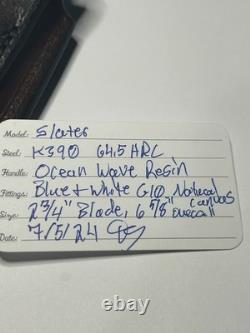 Model: Slates
Steel: K390 64.5 HRC
Handle: Ocean Wave Resin
Fittings: Blue + White G10, Natural Canvas
Size: 2 3/4" Blade, 6 5/8" overall
Date: 7/5/24
ebay